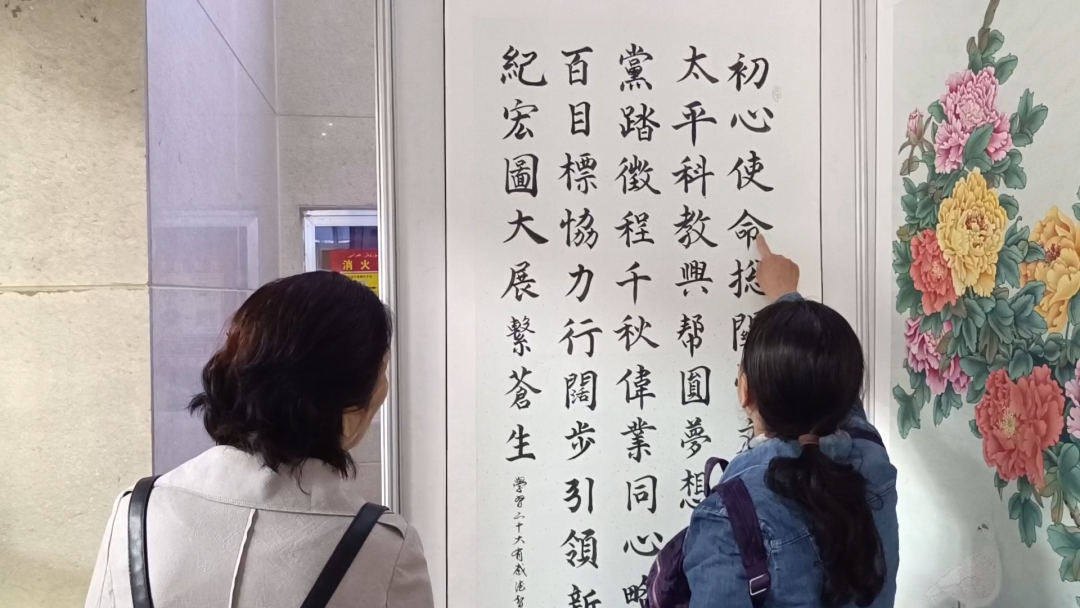 初心使命
太平科教興帮圓夢想
黨踏徵程千秋偉業同心略
百目標協力行闊步引領新
紀宏圖大展繫蒼生
學習二十大有感
消火